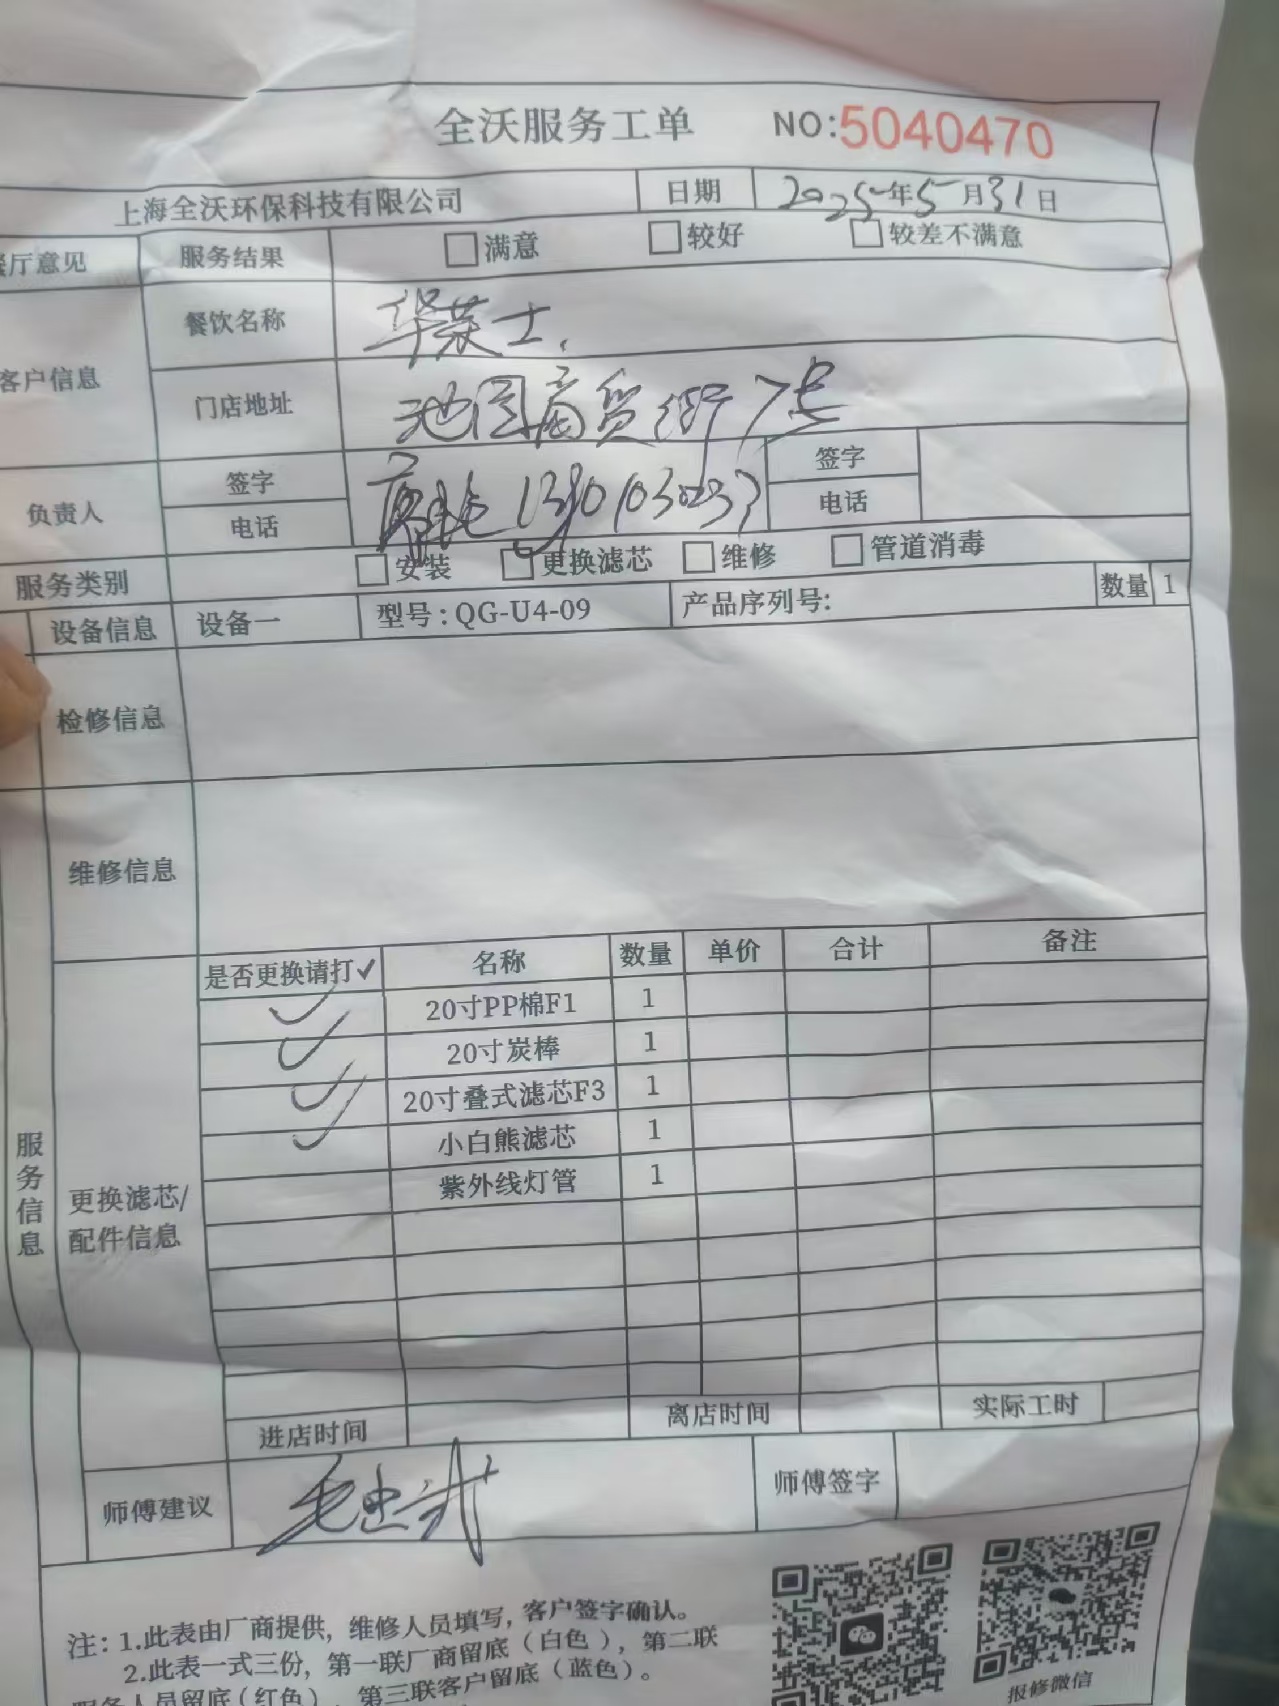 全沃服务工单 NO:5040470
上海全沃环保科技有限公司 日期 2025年5月31日
餐厅意见 服务结果 满意 较好 较差不满意
客户信息 餐饮名称 华莱士.
门店地址 商贸街7号
负责人 签字 签字
电话 电话
服务类别 安装 更换滤芯 维修 管道消毒
设备信息 设备一 型号:QG-U4-09 产品序列号: 数量 1
检修信息
维修信息
服务信息
更换滤芯/
配件信息
是否更换请打✓ 名称 数量 单价 合计 备注
✓ 20寸PP棉F1 1
✓ 20寸炭棒 1
✓ 20寸叠式滤芯F3 1
✓ 小白熊滤芯 1
紫外线灯管 1
进店时间 离店时间 实际工时
师傅建议 师傅签字
注:1.此表由厂商提供,维修人员填写,客户签字确认。
2.此表一式三份,第一联厂商留底(白色),第二联
服务人员留底(红色),第三联客户留底(蓝色)。
报修微信